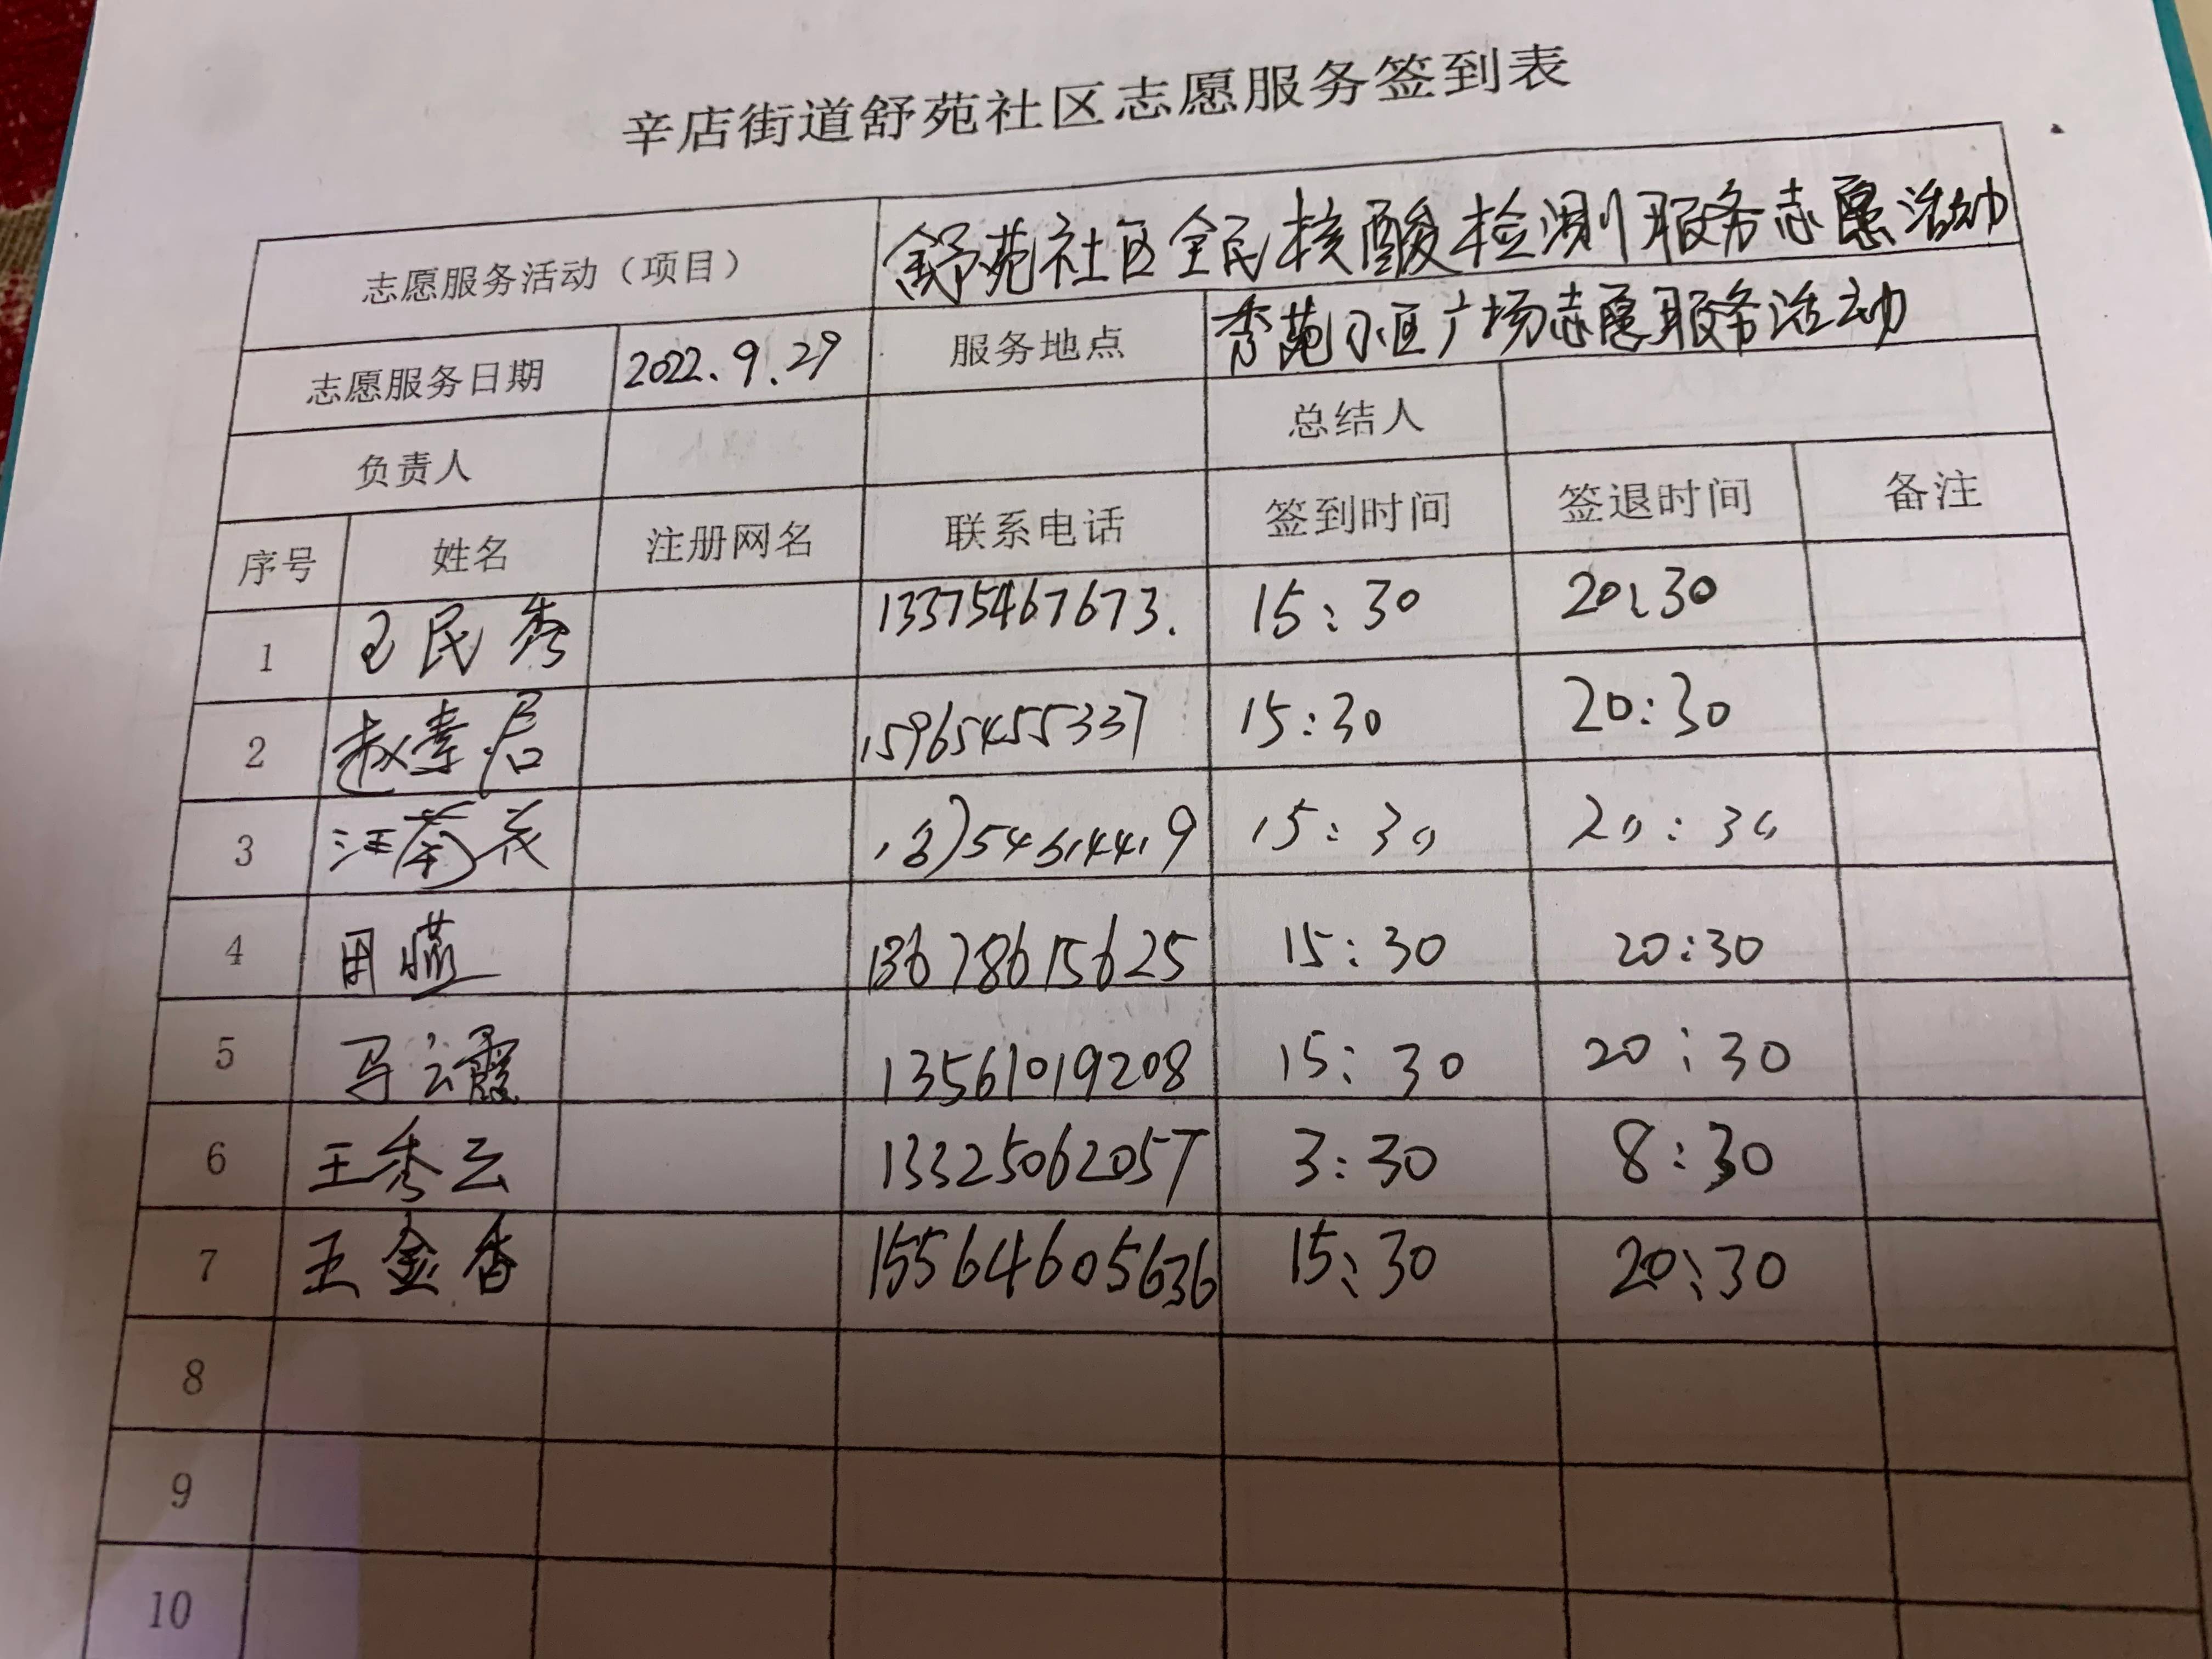 辛店街道舒苑社区志愿服务签到表
志愿服务活动（项目） 舒苑社区全民核酸检测服务志愿活动
志愿服务日期 2022.9.29 服务地点 秀苑小区广场志愿服务活动
负责人 总结人
序号 姓名 注册网名 联系电话 签到时间 签退时间 备注
1 王民秀 13375467673. 15:30 20:30
2 赵 15965455337 15:30 20:30
3 汪 15:30 20:30
4 周燕 13678615625 15:30 20:30
5 马云霞 13561019208 15:30 20:30
6 王秀云 13325062057 3:30 8:30
7 王金香 15564605636 15:30 20:30
8
9
10